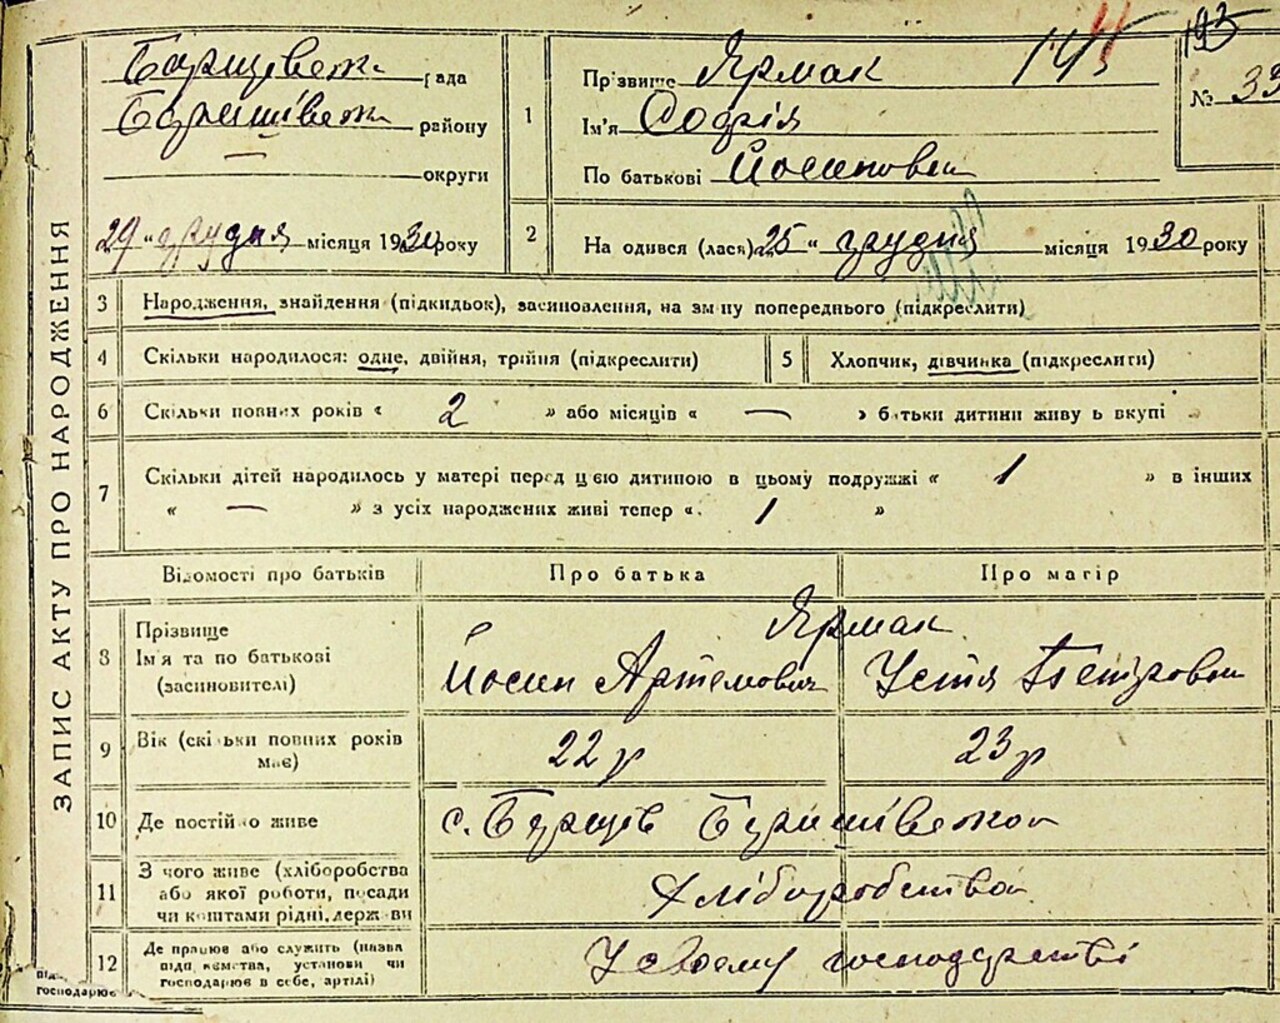 ЗАПИС АКТУ ПРО НАРОДЖЕННЯ
Борщівськ рада
Баришівськ району
— округи
"29" грудня місяця 1930 року
1
Прізвище Ярмак
145
Ім'я Софія
По батькові Йосиповн
195
№ 33
2
Народився (лася) "25" грудня місяця 1930 року
3 Народження, знайдення (підкидьок), засиновлення, на зміну попереднього (підкреслити)
4 Скільки народилося: одне, двійня, трійня (підкреслити)
5 Хлопчик, дівчинка (підкреслити)
6 Скільки повних років « 2 » або місяців « — » батьки дитини живуть вкупі
7 Скільки дітей народилось у матері перед цією дитиною в цьому подружжі « 1 » в інших
« — » з усіх народжених живі тепер « 1 »
Відомості про батьків
Про батька
Про матір
8 Прізвище
Ім'я та по батькові
(засиновителі)
Ярмак
Йосип Артемович
Устя Петровн
9 Вік (скільки повних років
має)
22 р
23 р
10 Де постійно живе
с. Борщів Баришівского
11 З чого живе (хліборобства
або якої роботи, посади
чи коштами рідні, держави
Хліборобства
12 Де працює або служить (назва
підприємства, установи чи
господарює в себе, артілі)
У своєму господарстві
господарює